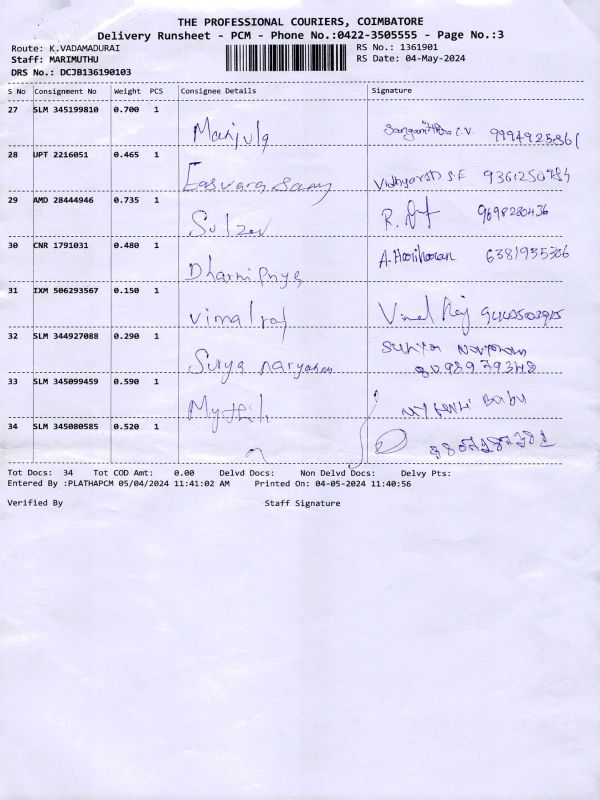 THE PROFESSIONAL COURIERS, COIMBATORE
Delivery Runsheet - PCM - Phone No.:0422-3505555 - Page No.:3
Route: K.VADAMADURAI RS No.: 1361901
Staff: MARIMUTHU RS Date: 04-May-2024
DRS No.: DCJB136190103
S No Consignment No Weight PCS Consignee Details Signature
27 SLM 345199810 0.700 1
Manjula
28 UPT 2216051 0.465 1
Easwara Samy
29 AMD 28444946 0.735 1
R. 9698280436
30 CNR 1791031 0.480 1
Dharni Priya A. Hariharan 6381935306
31 IXM 506293567 0.150 1
Vimal raj Vimal Raj
32 SLM 344927088 0.290 1
Surya narayanan
33 SLM 345099459 0.590 1
Mythili Mythili Babu
34 SLM 345080585 0.520 1
Tot Docs: 34 Tot COD Amt: 0.00 Delvd Docs: Non Delvd Docs: Delvy Pts:
Entered By :PLATHAPCM 05/04/2024 11:41:02 AM Printed On: 04-05-2024 11:40:56
Verified By Staff Signature